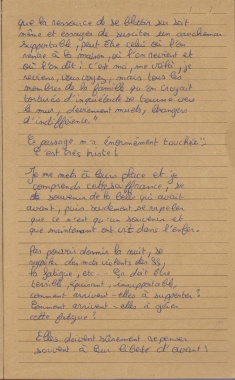 que la ressource de se blottir sur soi
même et essayer de susciter un arrachement
supportable, peut être celui où l'on
rentre à la maison, où l'on revient et
où l'on dit : c'est moi, me voilà, je
reviens, vous voyez, mais tous les
membres de la famille qu'on croyait
torturée d'inquiétude se tourne vers
le mur, deviennent muets, étrangers
d'indifférence."
Ce passage m'a énormément touchée,
c'est très triste !
Je me mets à leur place et je
comprends cette souffrance, se
souvenir de la belle qui avait
avant, puis sûrement se rappeler
que ce n'est qu'un souvenir et
que maintenant on vit dans l'enfer.
Pas pouvoir dormir la nuit, se
rappeler des mots violents des SS,
la fatigue, etc... Ça doit être
terrible, épuisant, insupportable,
comment arrivent-elles à supporter ?
Comment arrivent-elles à gérer
cette fatigue !
Elles doivent sûrement repenser
souvent à leur liberté d'avant !